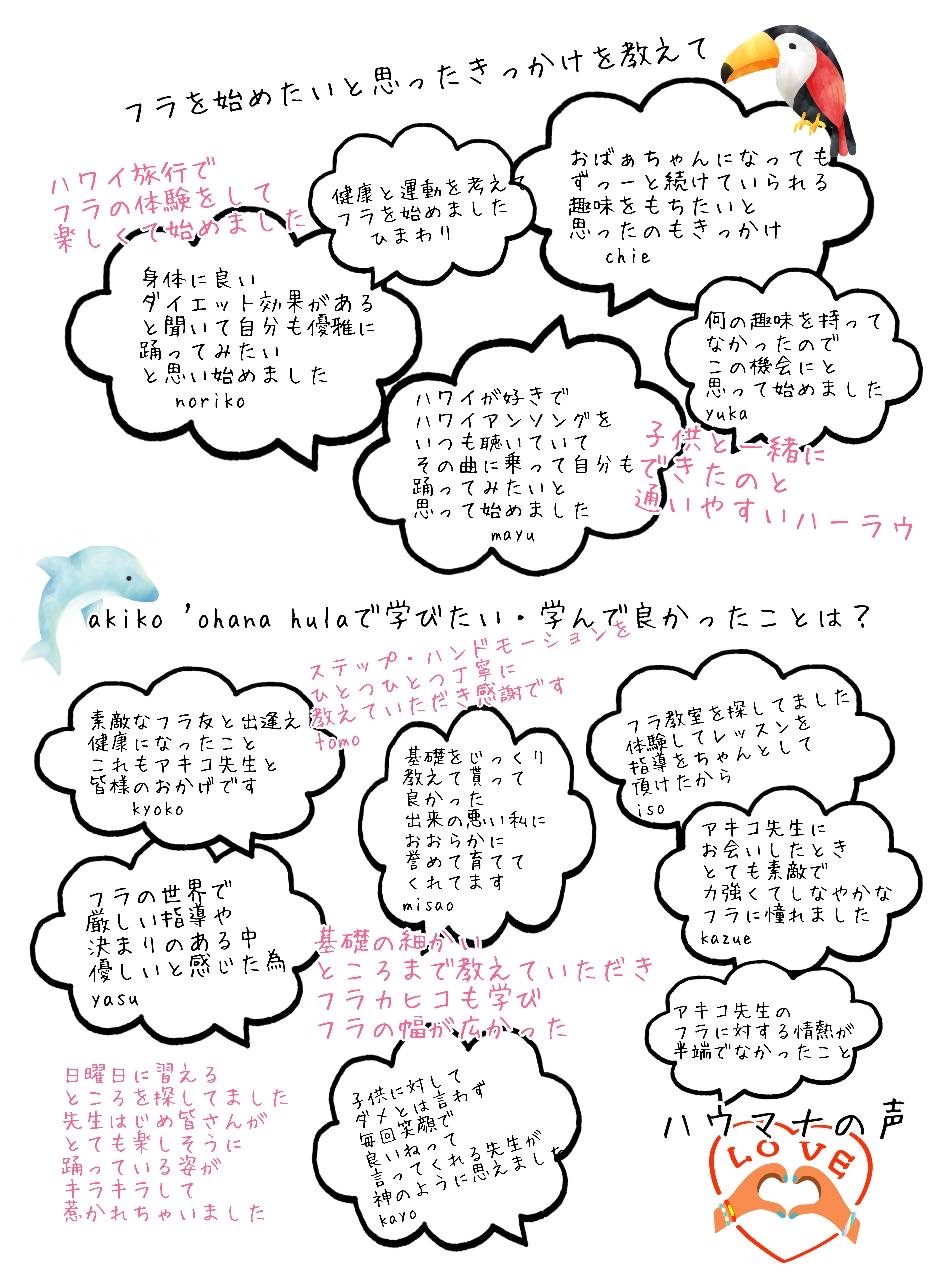 フラを始めたいと思ったきっかけを教えて
ハワイ旅行で
フラの体験をして
楽しくて始めました
健康と運動を考えて
フラを始めました
ひまわり
おばぁちゃんになっても
ずっーと続けていられる
趣味をもちたいと
思ったのもきっかけ
chie
身体に良い
ダイエット効果がある
と聞いて自分も優雅に
踊ってみたい
と思い始めました
noriko
何の趣味を持って
なかったので
この機会にと
思って始めました
yuka
ハワイが好きで
ハワイアンソングを
いつも聴いていて
その曲に乗って自分も
踊ってみたいと
思って始めました
mayu
子供と一緒に
できたのと
通いやすいハーラウ
akiko 'ohana hulaで学びたい・学んで良かったことは?
ステップ・ハンドモーションを
ひとつひとつ丁寧に
教えていただき感謝です
tomo
素敵なフラ友と出逢え
健康になったこと
これもアキコ先生と
皆様のおかげです
kyoko
基礎をじっくり
教えて貰って
良かった
出来の悪い私に
おおらかに
誉めて育てて
くれてます
misao
フラ教室を探してました
体験してレッスンを
指導をちゃんとして
頂けたから
iso
アキコ先生に
お会いしたとき
とても素敵で
力強くてしなやかな
フラに憧れました
kazue
フラの世界で
厳しい指導や
決まりのある中
優しいと感じた為
yasu
基礎の細かい
ところまで教えていただき
フラカヒコも学び
フラの幅が広かった
アキコ先生の
フラに対する情熱が
半端でなかったこと
日曜日に習える
ところを探してました
先生はじめ皆さんが
とても楽しそうに
踊っている姿が
キラキラして
惹かれちゃいました
子供に対して
ダメとは言わず
毎回笑顔で
良いねって
言ってくれる先生が
神のように思えました
kayo
ハウマナの声
LOVE